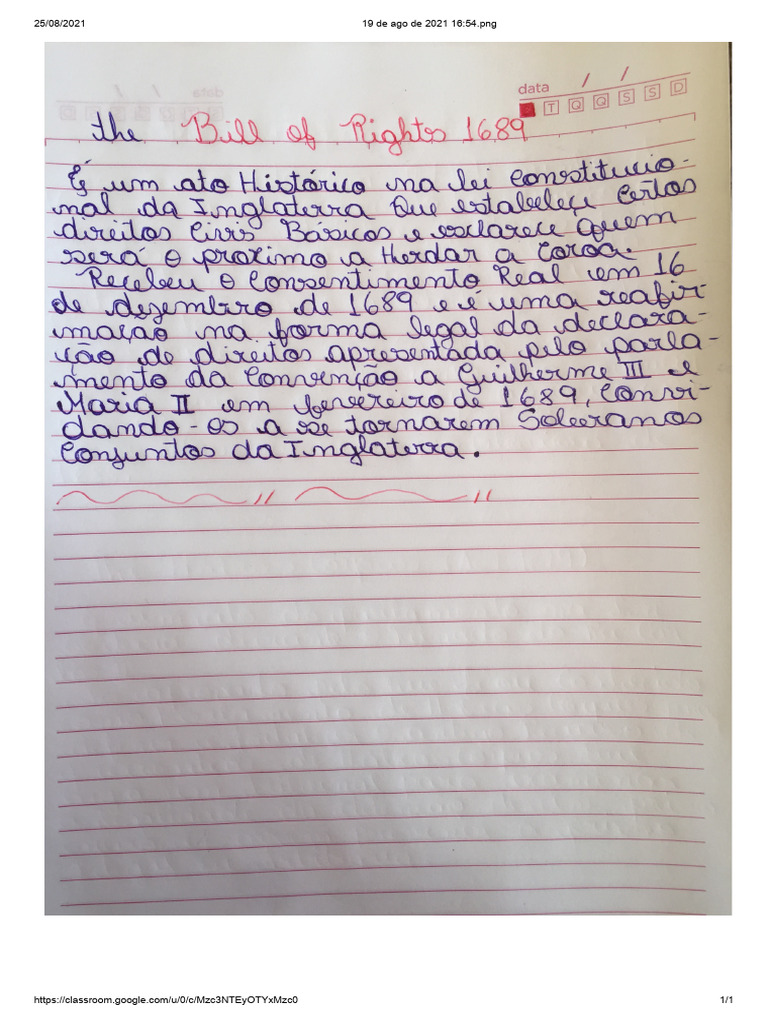 25/08/2021 19 de ago de 2021 16:54.png
data / /
T Q Q S S D
the Bill of Rights 1689
É um ato Histórico na lei Constitucio-
nal da Inglaterra Que estabeleçe Certos
direitos Civis Básicos e esclarece Quem
será o proximo a Herdar a Coroa.
Recebeu o Consentimento Real em 16
de dezembro de 1689 e é uma reafir-
mação na forma legal da declara-
ção de direitos apresentada pelo parla-
mento da Convenção a Guilherme III e
Maria II em fevereiro de 1689, Convi-
dando-os a se tornarem Soberanos
Conjuntos da Inglaterra.
https://classroom.google.com/u/0/c/Mzc3NTEyOTYxMzc0 1/1